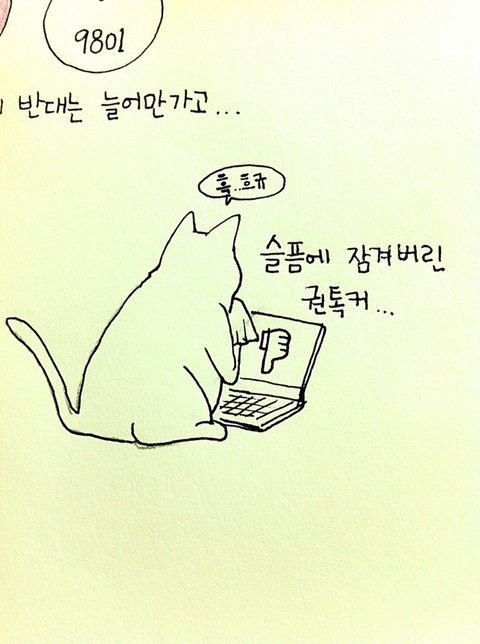 9801
반대는 늘어만가고...
흑..흐규
슬픔에 잠겨버린
권톡커...